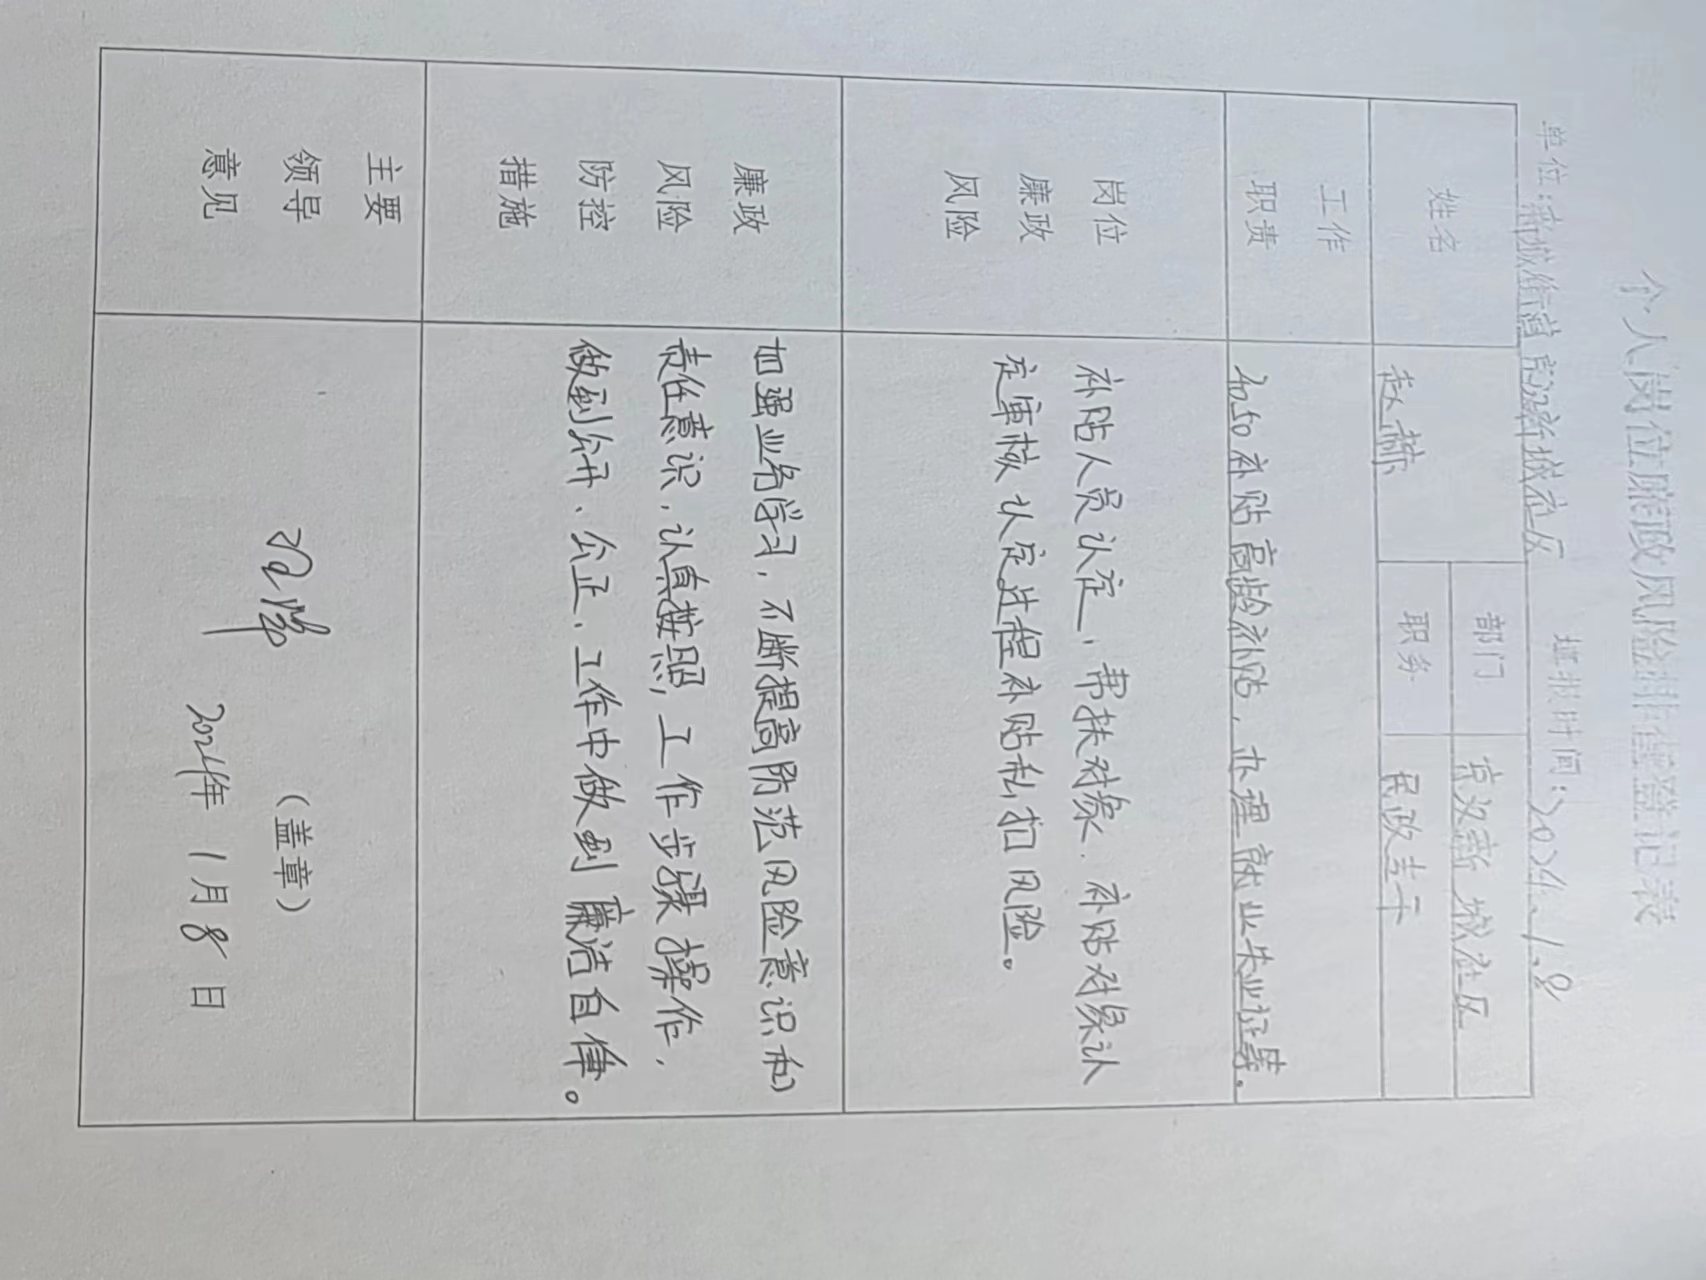 个人岗位廉政风险排查登记表
单位:新城街道京汉新城社区 填报时间:2024.1.8
姓名 赵赫 部门 京汉新城社区
职务 民政专干
工作
职责
4050补贴高龄补贴、办理就业失业证等.
岗位
廉政
风险
补贴人员认定、帮扶对象、补贴对像认
定审核认定过程补贴私扣风险。
廉政
风险
防控
措施
加强业务学习,不断提高防范风险意识和
责任意识,认真按照,工作步骤操作,
做到公开、公正、工作中做到廉洁自律。
主要
领导
意见
(盖章)
2024年1月8日